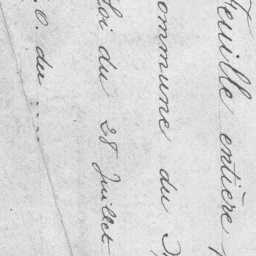 Feuille entière
ommune du
Loi du 28 Juillet
. O. du ....